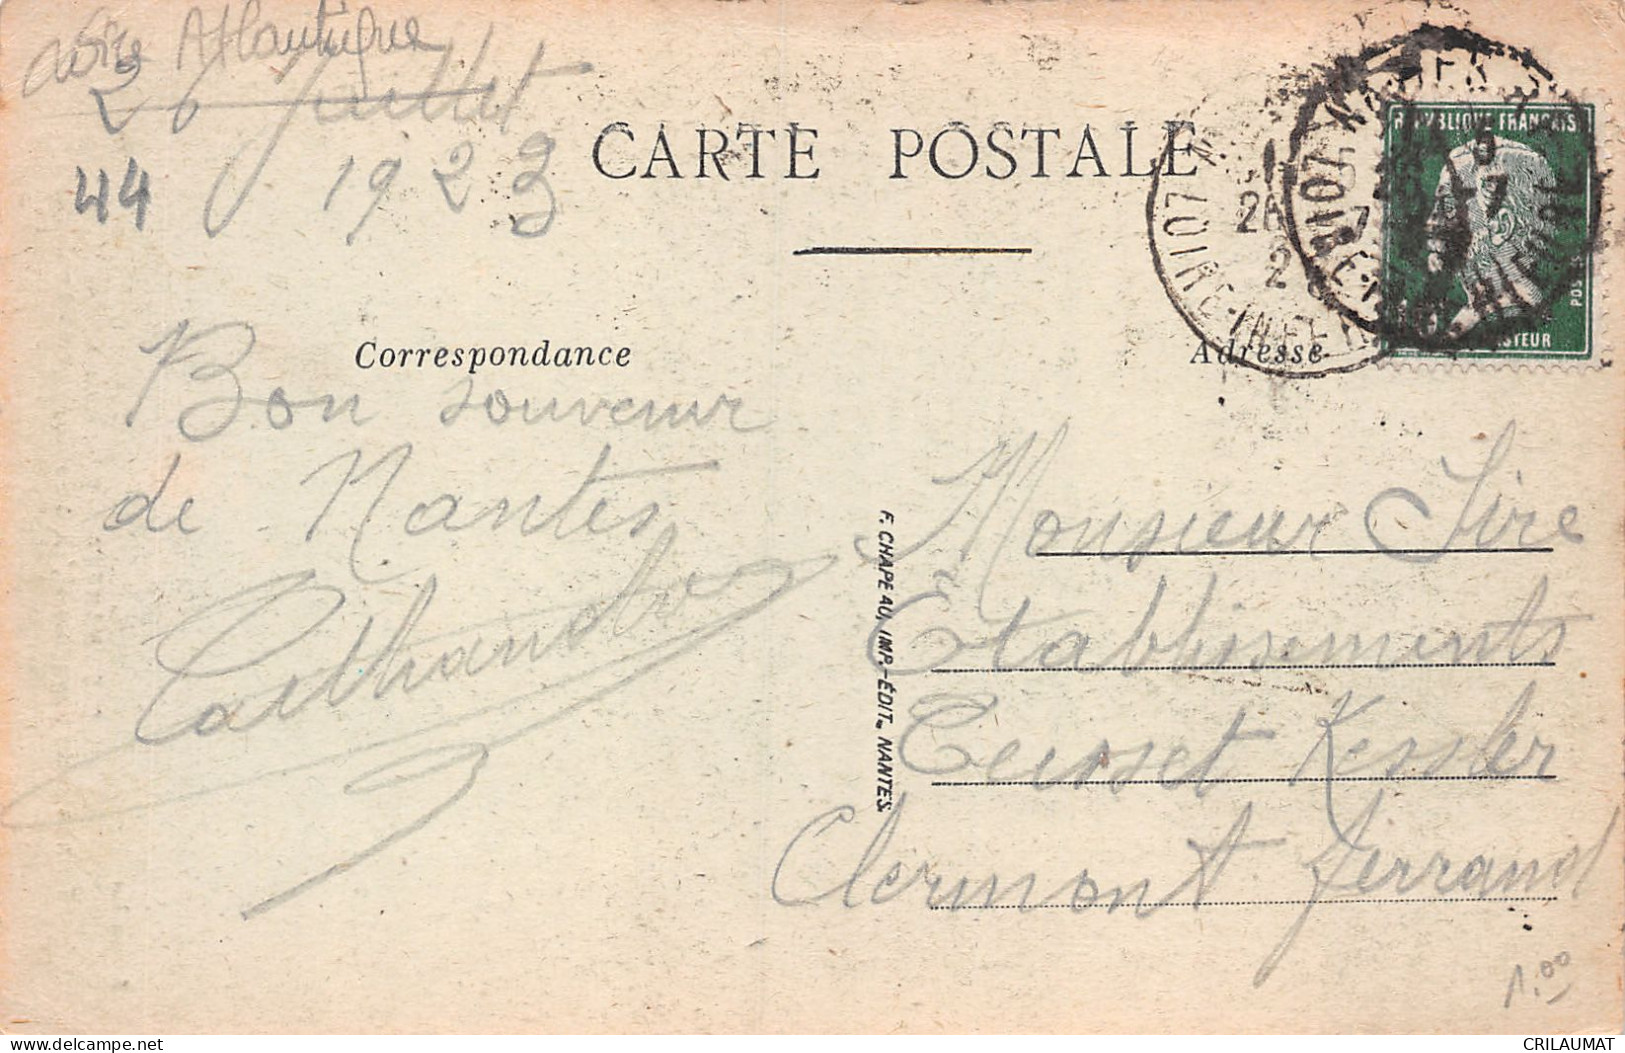 Loire Atlantique
26 Juillet
44 1923
CARTE POSTALE
Correspondance
Adresse
RÉPUBLIQUE FRANÇAISE
LOIRE-INFRE
Bon souvenir
de Nantes
F. CHAPEAU, IMP.-ÉDIT., NANTES.
Monsieur Sire
Etablissements
Cusset Kessler
Clermont Ferrand
1.00
delcampe.net
CRILAUMAT